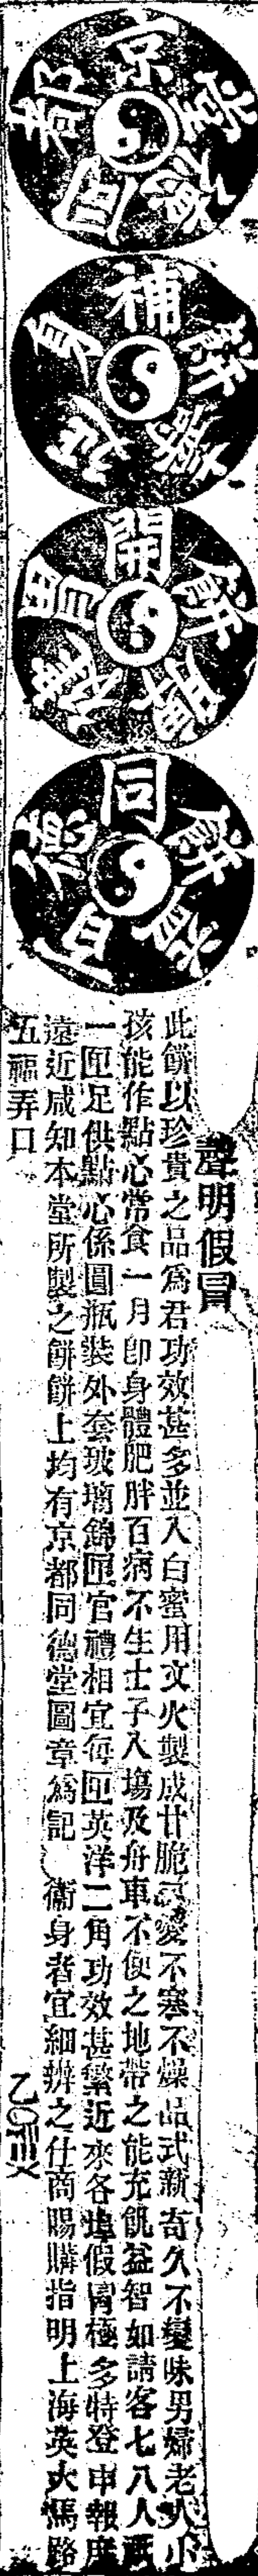 京都同德堂
補身延壽餅
開胃健脾餅
同德百餅
聲明假冒
此餅以珍貴之品爲君功效甚多並入白蜜用文火製成甘脆可愛不塞不燥品式新奇久不變味男婦老人小
孩能作點心常食一月卽身體肥胖百病不生士子入塲及舟車不便之地帶之能充飢益智如請客七八人祇
一匣足供點心係圓瓶裝外套玻璃錦匣官禮相宜每匣英洋二角功效甚繁近來各埠假冒極多特登申報庶
遠近咸知本堂所製之餅餅上均有京都同德堂圖章爲記 衞身者宜細辨之仕商賜購指明上海英大馬路
五福弄口